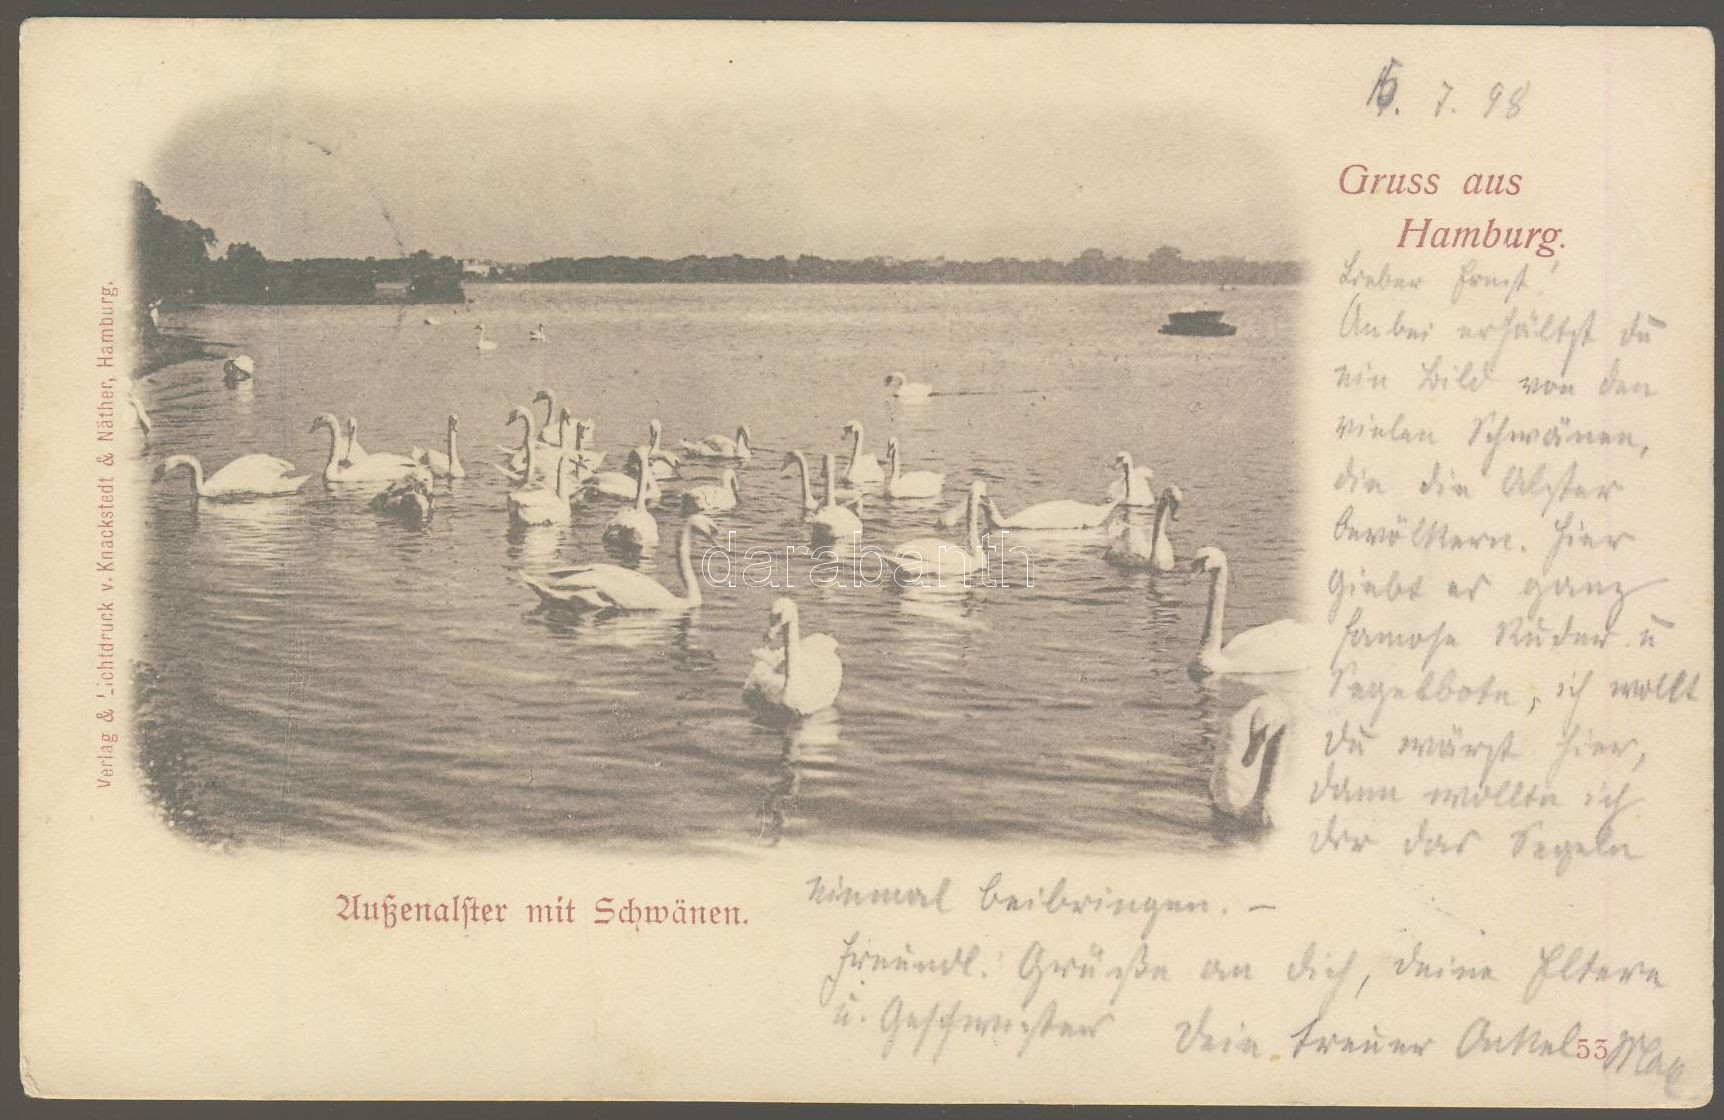 6. 7. 98
Gruss aus
Hamburg.
Lieber Ernst!
Anbei erhältst du
ein Bild von den
vielen Schwänen,
die die Alster
bevölkern. Hier
giebt es ganz
famose Ruder u
Segelbote, ich wollt
du wärst hier,
dann wollte ich
dir das Segeln
einmal beibringen. —
Freundl. Grüße an dich, deine Eltern
u. Geschwister Dein treuer Onkel Max
53
Außenalster mit Schwänen.
Verlag & Lichtdruck v. Knackstedt & Näther, Hamburg.
darabanth